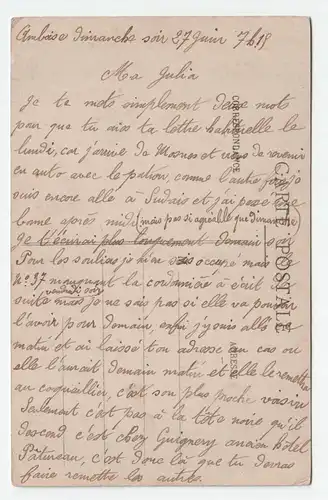 Amboise Dimanche soir 27 Juin 7h18
Ma Julia
Je te mets simplement deux mots
pour que tu aies ta lettre habituelle le
lundi, car j'arrive de Mosnes et viens de revenir
en auto avec le patron, comme l'autre fois je
suis encore allé à Sudais et j'ai passé une
bonne après midi mais pas si agréable que dimanche
je t'écrirai plus longuement demain soir
Pour les souliers je m'en suis occupé mais le
N° 37 manquant la cordonnière a écrit de
suite vendredi soir mais je ne sais pas si elle va pouvoir
l'avoir pour demain, enfin j'y suis allé ce
matin et ai laissé ton adresse au cas ou
elle l'aurait demain matin et elle le remettra
au coquaillier, c'est son plus proche voisin
Seulement c'est pas à la tête noire qu'il
descend c'est chez Guignery ancien hôtel
Patureau, c'est donc là que tu devras
faire remettre les autres.
CORRESPONDANCE
CARTE POSTALE
ADRESSE